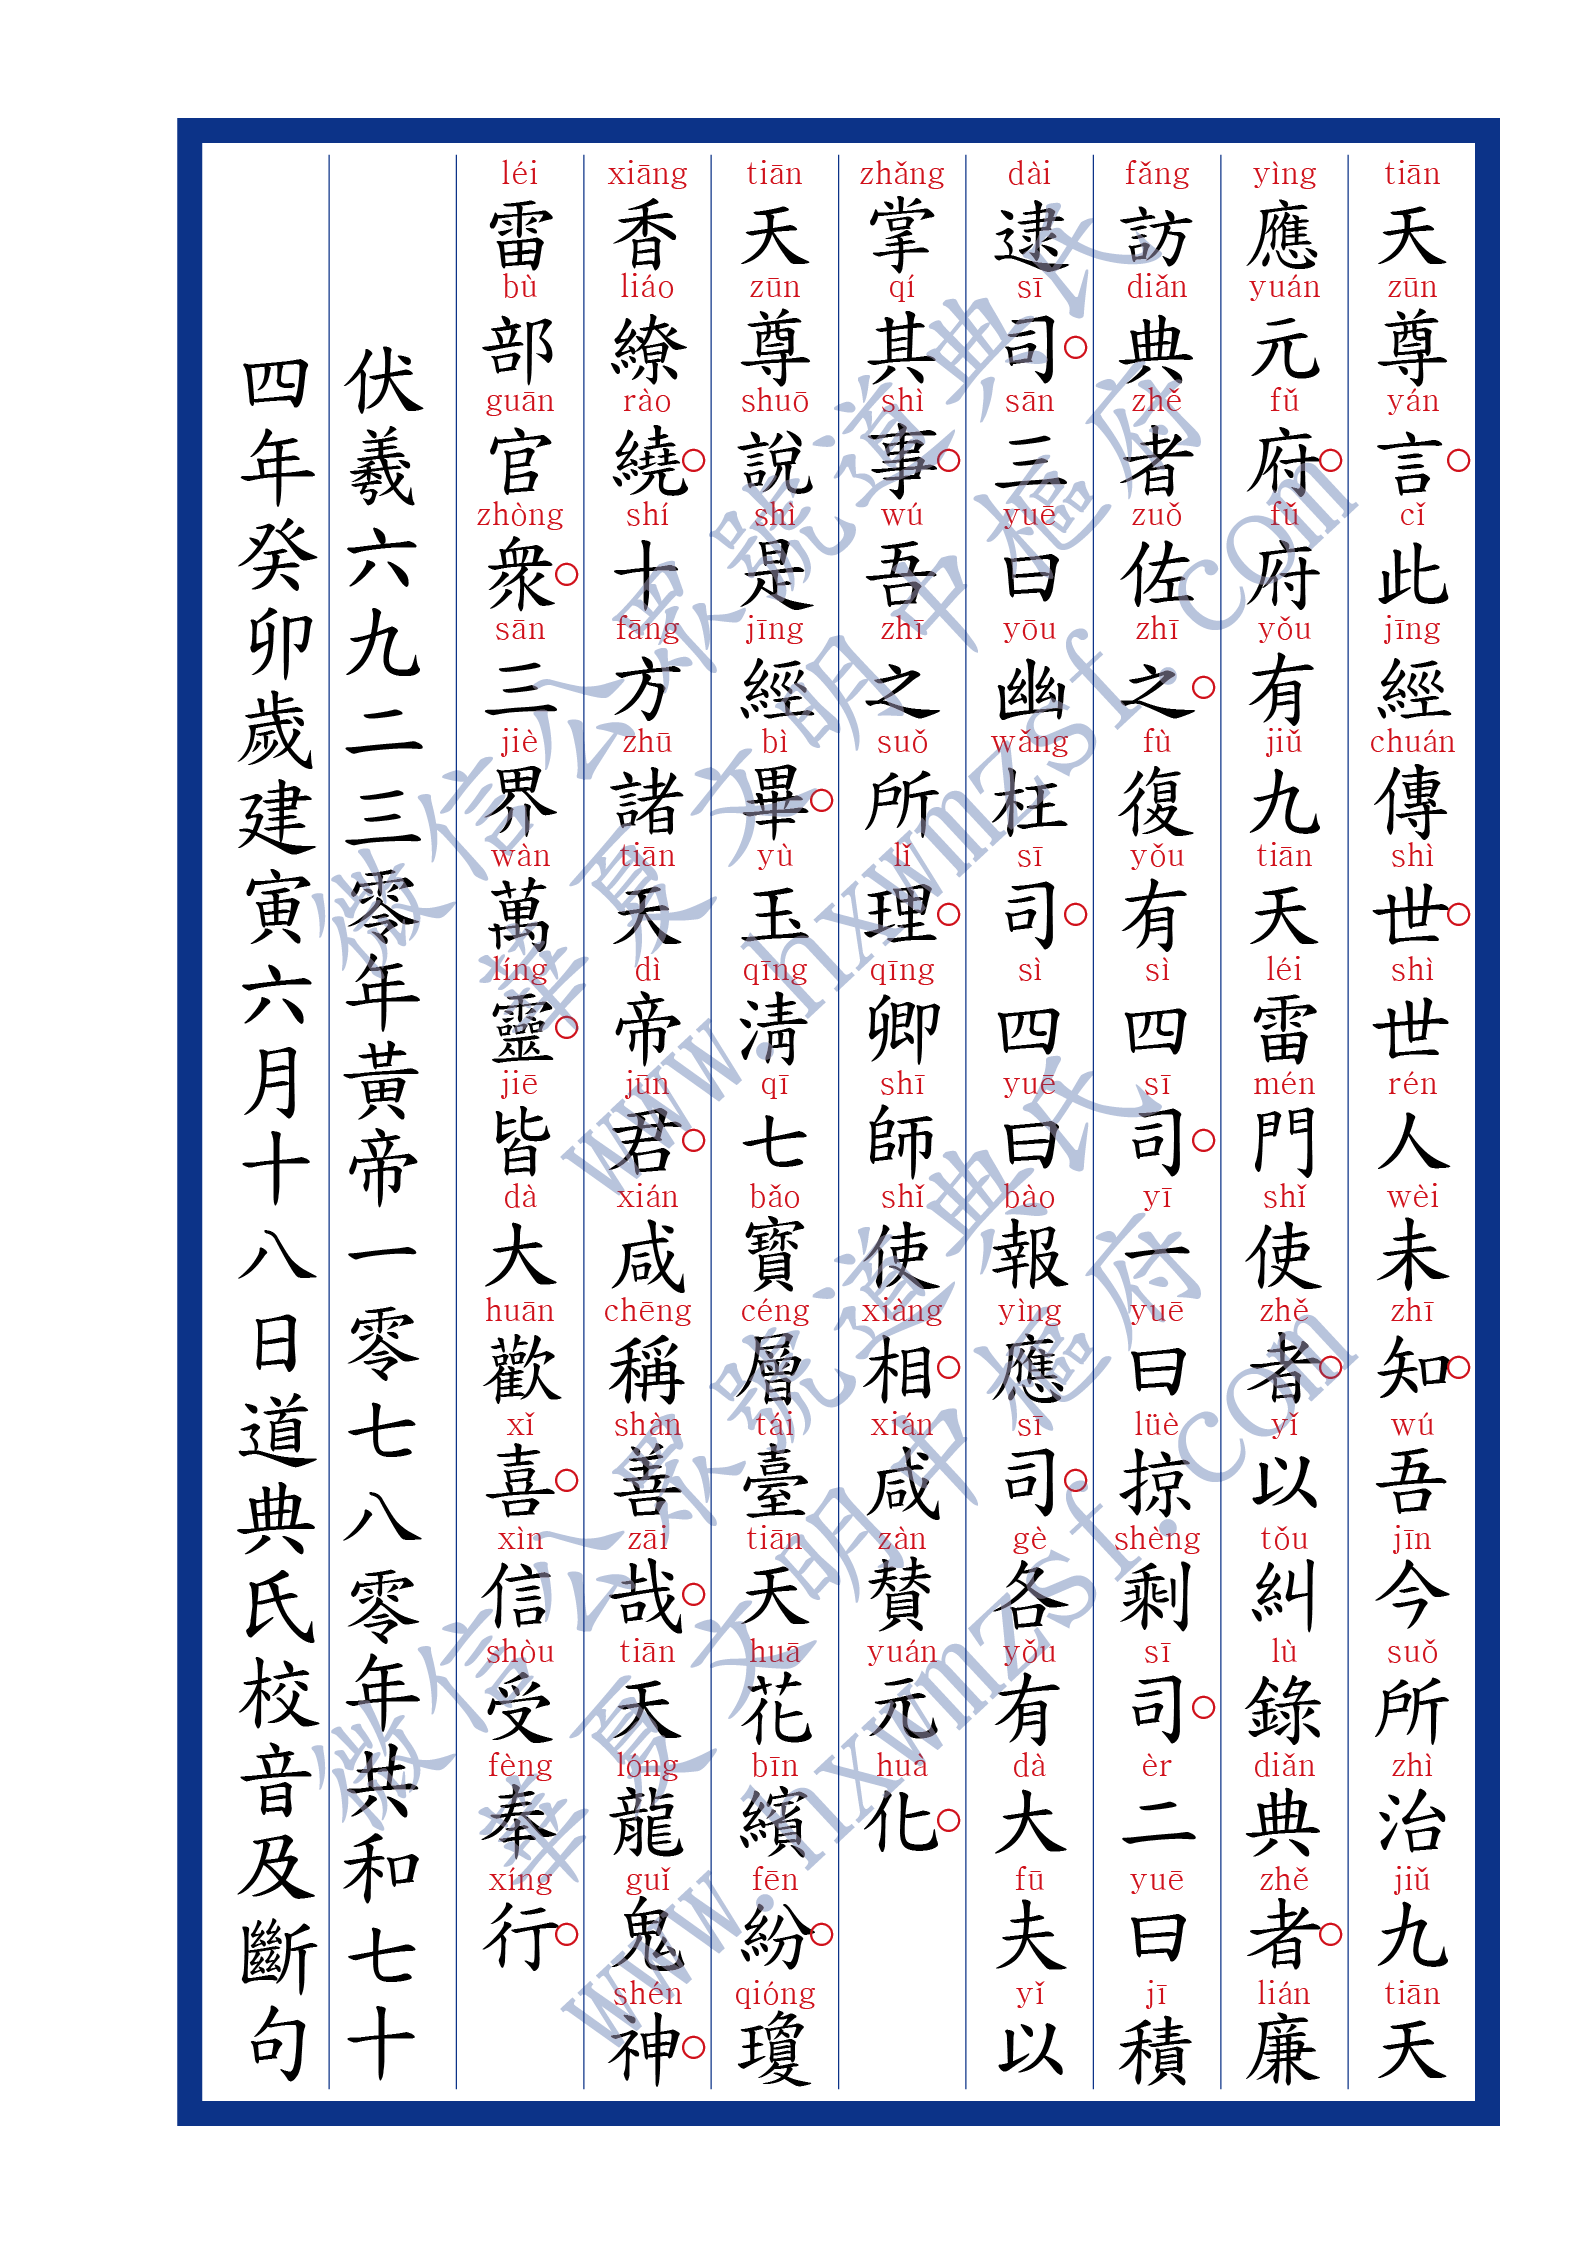 天尊言○此經傳世○世人未知○吾今所治九天
應元府○府有九天雷門使者○以糾錄典者○廉
訪典者佐之○復有四司○一曰掠剩司○二曰積
逮司○三曰幽枉司○四曰報應司○各有大夫以
掌其事○吾之所理○卿師使相○咸贊元化○
天尊說是經畢○玉淸七寳層臺天花繽紛○瓊
香繚繞○十方諸天帝君○咸稱善哉○天龍鬼神○
雷部官衆○三界萬靈○皆大歡喜○信受奉行○
伏羲六九二三零年黃帝一零七八零年共和七十
四年癸卯歲建寅六月十八日道典氏校音及斷句
tiān zūn yán cǐ jīng chuán shì shì rén wèi zhī wú jīn suǒ zhì jiǔ tiān
yìng yuán fǔ fǔ yǒu jiǔ tiān léi mén shǐ zhě yǐ tǒu lù diǎn zhě lián
fǎng diǎn zhě zuǒ zhī fù yǒu sì sī yī yuē lüè shèng sī èr yuē jī
dài sī sān yuē yōu wǎng sī sì yuē bào yìng sī gè yǒu dà fū yǐ
zhǎng qí shì wú zhī suǒ lǐ qīng shī shǐ xiàng xián zàn yuán huà
tiān zūn shuō shì jīng bì yù qīng qī bǎo céng tái tiān huā bīn fēn qióng
xiāng liáo rào shí fāng zhū tiān dì jūn xián chēng shàn zāi tiān lóng guǐ shén
léi bù guān zhòng sān jiè wàn líng jiē dà huān xǐ xìn shòu fèng xíng
微信公眾號道典氏
華夏文明中樞府
www.hxwmzsf.com
微信公眾號道典氏
華夏文明中樞府
www.hxwmzsf.com